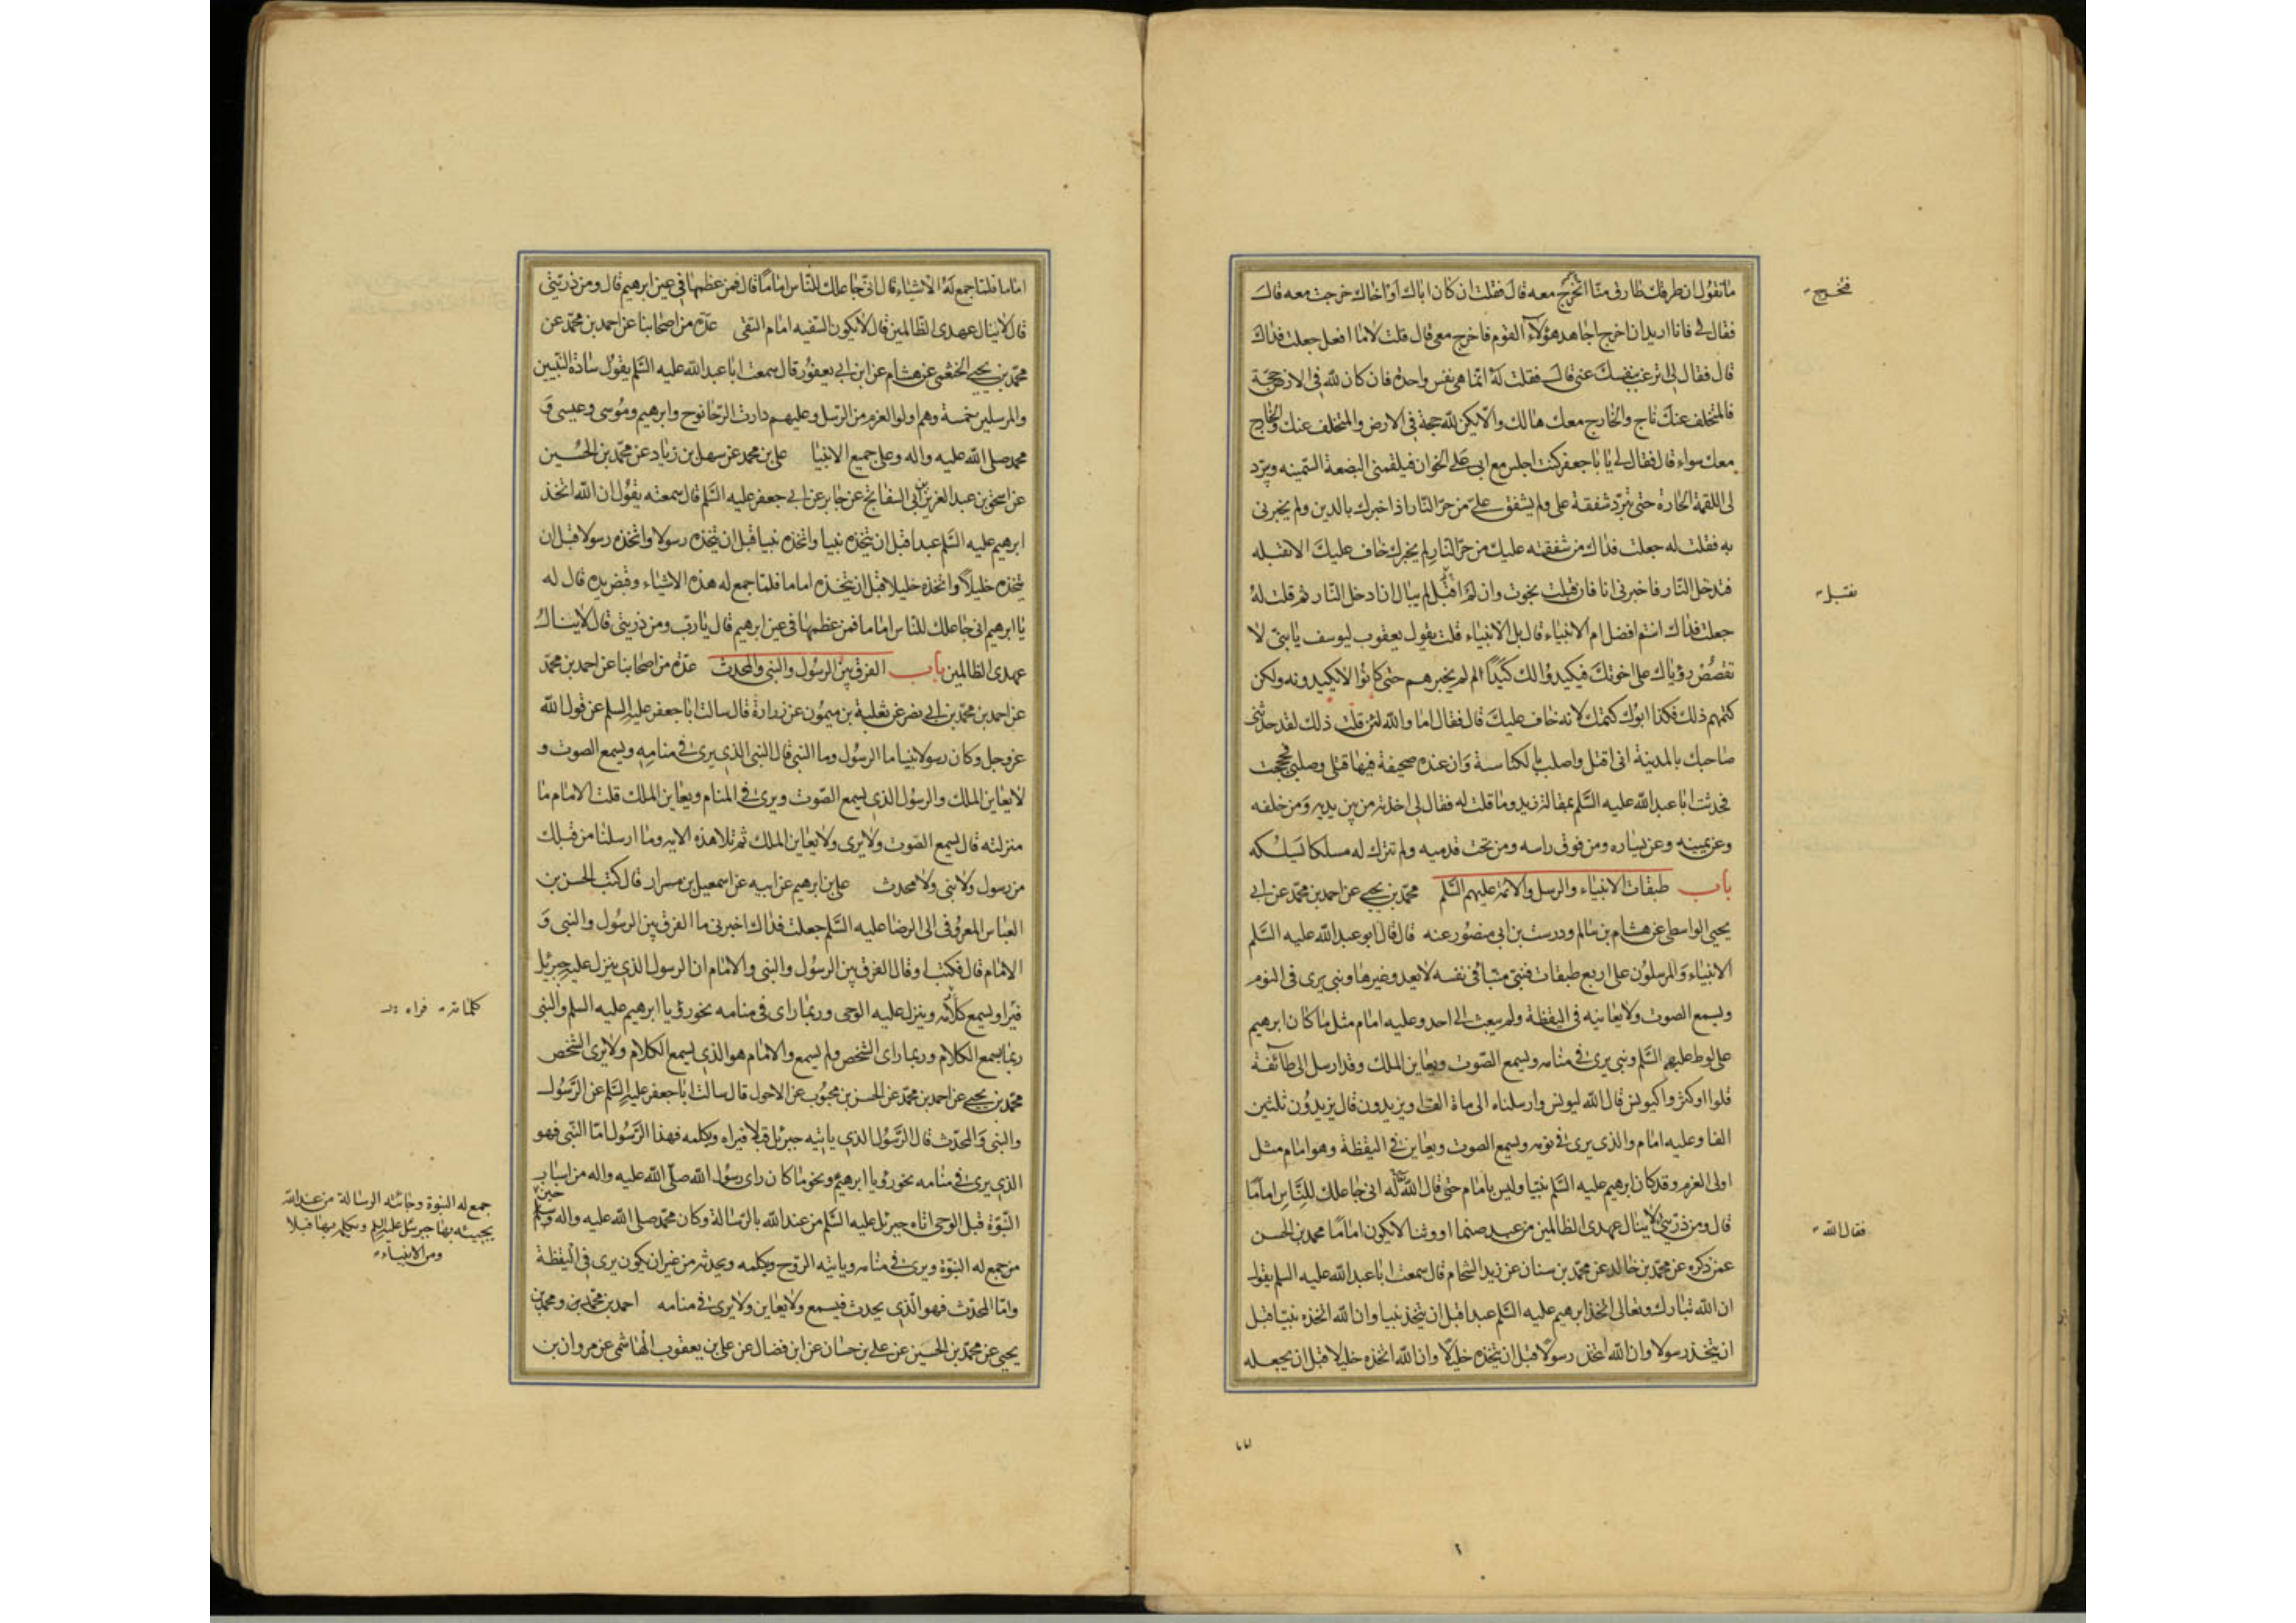 ما تقول ان طرقك طارق منا اتخرج معه قال فقلت ان كان اباك او اخاك خرجت معه قال
فخرج
فقال لى فانا اريد ان اخرج اجاهد هؤلاء القوم فاخرج معى قال قلت لا ما افعل جعلت فداك
قال فقال لى ترغب بنفسك عنى قال فقلت له انما هى نفس واحدة فان كان لله فى الارض حجة
فالمتخلف عنك ناج والخارج معك هالك والا يكن لله حجة فى الارض والمتخلف عنك والخارج
معك سواء قال فقال لى يا با جعفر كنت اجلس مع ابى على الخوان فيلقمنى البضعة السمينه ويبرد
لى اللقمة الحارة حتى تبرد شفقة على ولم يشفق على من حر النار اذا اخبرك بالدين ولم يخبرنى
به فقلت له جعلت فداك من شفقته عليك من حر النار لم يخبرك خاف عليك الا تقبله
فتدخل النار فاخبرنى انا فان قبلت نجوت وان لم اقبل لم يبال ان ادخل النار ثم قلت له
نقبل
جعلت فداك انتم افضل ام الانبياء قال بل الانبياء قلت يقول يعقوب ليوسف يا بنى لا
تقصص رؤياك على اخوتك فيكيدوا لك كيدا لم لم يخبرهم حتى كانوا لا يكيدونه ولكن
كتمهم ذلك فكذا ابوك كتمك لانه خاف عليك قال فقال اما والله لئن قلت ذلك لقد حدثنى
صاحبك بالمدينة انى اقتل واصلب بالكناسة وان عنده صحيفة فيها قتلى وصلبى فحججت
فحدثت ابا عبد الله عليه السلم بمقالة زيد وما قلت له فقال لى اخذته من بين يديه ومن خلفه
وعن يمينه وعن يساره ومن فوق راسه ومن تحت قدميه ولم تترك له مسلكا يسلكه
باب طبقات الانبياء والرسل والائمة عليهم السلم محمد بن يحيى عن احمد بن محمد عن ابى
يحيى الواسطى عن هشام بن سالم ودرست بن ابى منصور عنه قال قال ابو عبد الله عليه السلم
الانبياء والمرسلون على اربع طبقات فنبى منبأ فى نفسه لا يعدو غيرها ونبى يرى فى النوم
ويسمع الصوت ولا يعاينه فى اليقظة ولم يبعث الى احد وعليه امام مثل ما كان ابرهيم
على لوط عليهم السلم ونبى يرى فى منامه ويسمع الصوت ويعاين الملك وقد ارسل الى طائفة
قلوا او كثروا كيونس قال الله ليونس وارسلناه الى ماة الف او يزيدون قال يزيدون ثلثين
الفا وعليه امام والذى يرى فى نومه ويسمع الصوت ويعاين فى اليقظة وهو امام مثل
اولى العزم وقد كان ابرهيم عليه السلم نبيا وليس بامام حتى قال الله له انى جاعلك للناس اماما
قال ومن ذريتى لا ينال عهدى الظالمين من عبد صنما او وثنا لا يكون اماما محمد بن الحسن
فقال الله
عمن ذكره عن محمد بن خالد عن محمد بن سنان عن زيد الشحام قال سمعت ابا عبد الله عليه السلم يقول
ان الله تبارك وتعالى اتخذ ابرهيم عليه السلم عبدا قبل ان يتخذ نبيا وان الله اتخذه نبيا قبل
ان يتخذ رسولا وان الله اتخذ رسولا قبل ان يتخذه خليلا وان الله اتخذه خليلا قبل ان يجعله
اماما فلما جمع له الاشياء قال انى جاعلك للناس اماما قال فمن عظمها فى عين ابرهيم قال ومن ذريتى
قال لا ينال عهدى الظالمين قال لا يكون السفيه امام التقى عدة من اصحابنا عن احمد بن محمد عن
محمد بن يحيى الخثعمى عن هشام عن ابن ابى يعفور قال سمعت ابا عبد الله عليه السلم يقول سادة النبيين
والمرسلين خمسة وهم اولوا العزم من الرسل وعليهم دارت الرحا نوح وابرهيم وموسى وعيسى و
محمد صلى الله عليه واله وعلى جميع الانبيا على بن محمد عن سهل بن زياد عن محمد بن الحسين
عن اسحق بن عبد العزيز ابى السفاتج عن جابر عن ابى جعفر عليه السلم قال سمعته يقول ان الله اتخذ
ابرهيم عليه السلم عبدا قبل ان يتخذه نبيا واتخذه نبيا قبل ان يتخذه رسولا واتخذه رسولا قبل ان
يتخذه خليلا واتخذه خليلا قبل ان يتخذه اماما فلما جمع له هذه الاشياء وقبض يده قال له
يا ابرهيم انى جاعلك للناس اماما فمن عظمها فى عين ابرهيم قال يا رب ومن ذريتى قال لا ينال
عهدى الظالمين باب الفرق بين الرسول والنبى والمحدث عدة من اصحابنا عن احمد بن محمد
عن احمد بن محمد بن ابى نصر عن ثعلبة بن ميمون عن زرارة قال سالت ابا جعفر عليه السلم عن قول الله
عز وجل وكان رسولا نبيا ما الرسول وما النبى قال النبى الذى يرى فى منامه ويسمع الصوت و
لا يعاين الملك والرسول الذى يسمع الصوت ويرى فى المنام ويعاين الملك قلت الامام ما
منزلته قال يسمع الصوت ولا يرى ولا يعاين الملك ثم تلا هذه الايه وما ارسلنا من قبلك
من رسول ولا نبى ولا محدث على بن ابرهيم عن ابيه عن اسمعيل بن مرار قال كتب الحسن بن
العباس المعروفى الى الرضا عليه السلم جعلت فداك اخبرنى ما الفرق بين الرسول والنبى و
الامام قال فكتب او قال الفرق بين الرسول والنبى والامام ان الرسول الذى ينزل عليه جبرئيل
فيراه ويسمع كلامه وينزل عليه الوحى وربما راى فى منامه نحو رؤيا ابرهيم عليه السلم والنبى
كلماته فراه
ربما يسمع الكلام وربما راى الشخص ولم يسمع والامام هو الذى يسمع الكلام ولا يرى الشخص
محمد بن يحيى عن احمد بن محمد عن الحسن بن محبوب عن الاحول قال سالت ابا جعفر عليه السلم عن الرسول
والنبى والمحدث قال الرسول الذى ياتيه جبرئل قبلا فيراه ويكلمه فهذا الرسول اما النبى فهو
الذى يرى فى منامه نحو رؤيا ابرهيم ونحو ما كان راى رسول الله صلى الله عليه واله من اسباب
النبوة قبل الوحى حين اتاه جبرئل عليه السلم من عند الله بالرسالة وكان محمد صلى الله عليه واله وسلم
جمع له النبوة وجاءته الرسالة من عند الله
يجيئه بها جبرئل عليه السلم ويكلمه بها قبلا
ومن الانبياء
من جمع له النبوة ويرى فى منامه وياتيه الروح ويكلمه ويحدثه من غير ان يكون يرى فى اليقظة
واما المحدث فهو الذى يحدث فيسمع ولا يعاين ولا يرى فى منامه احمد بن محمد ومحمد بن
يحيى عن محمد بن الحسين عن على بن حسان عن ابن فضال عن على بن يعقوب الهاشمى عن مروان بن